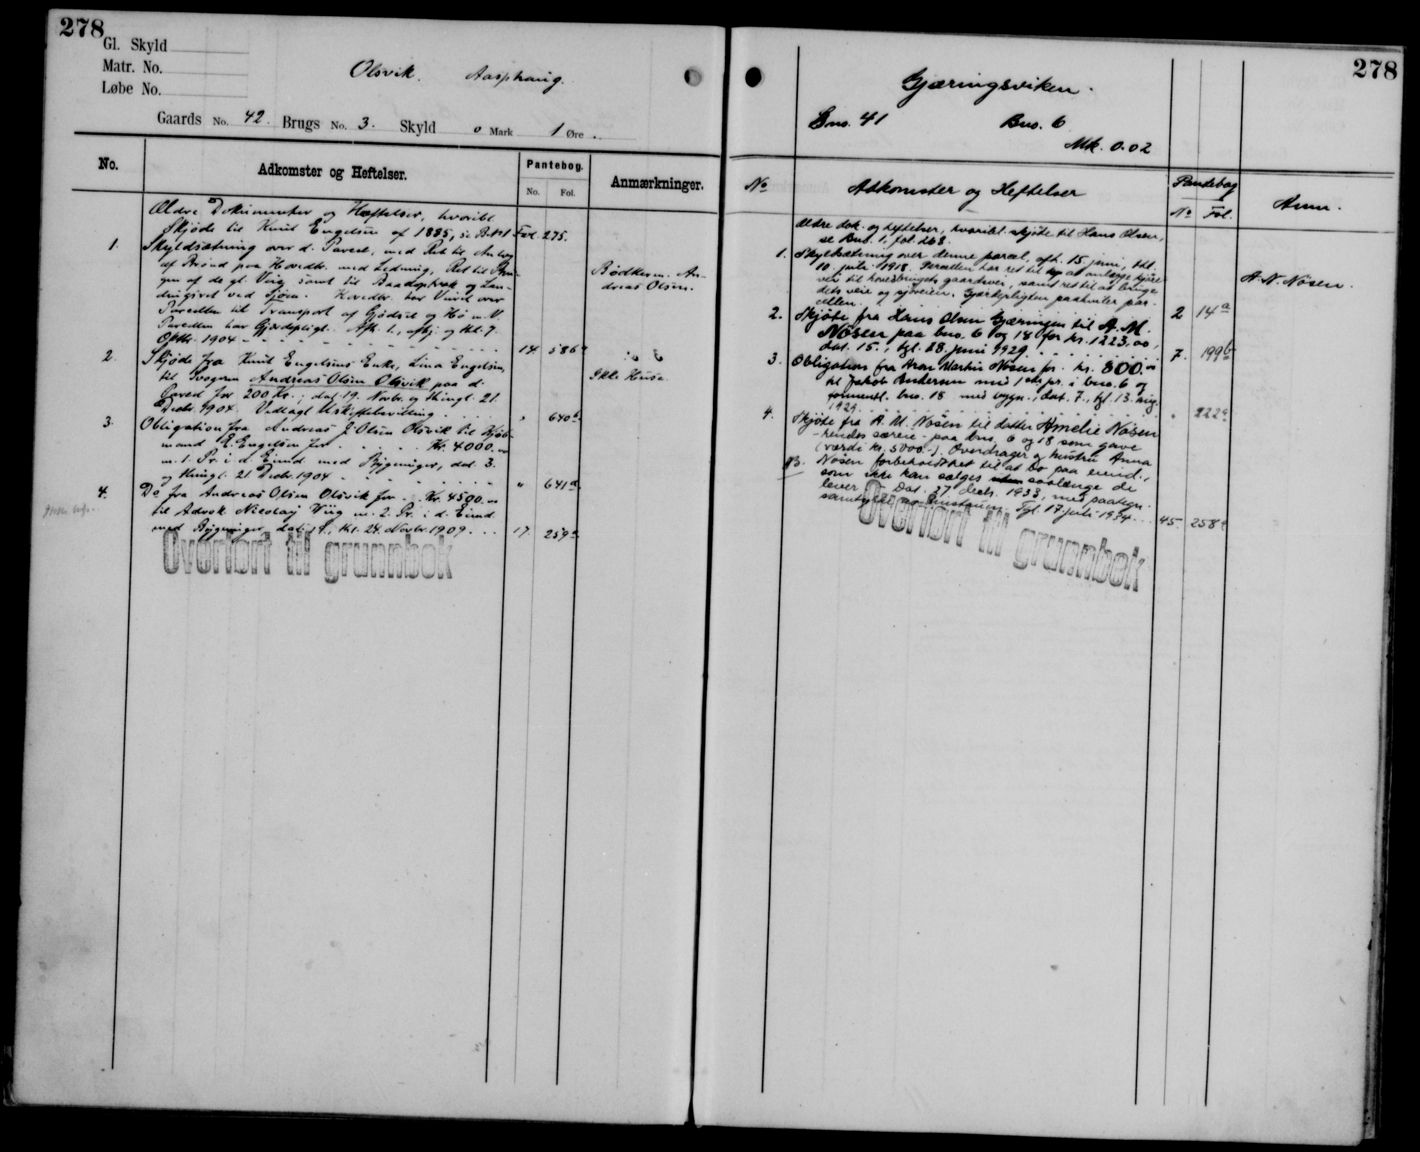 278
Gl. Skyld
Matr. No.
Løbe No.
Olsvik. Aasphaug.
Gaards No. 42. Brugs No. 3. Skyld 0 Mark 1 Øre.
No.
Adkomster og Heftelser.
Pantebog.
No. Fol.
Anmærkninger.
Ældre Dokumenter og Hæftelser, hvoribl.
Skjøde til Knut Engelsen af 1885, se B.N. 1 Fol. 275.
1. Skyldsætning over d. Parcel, med Ret til Anlæg
af Brønd paa Hovedbr. med Ledning, Ret til Bru-
gen af de gl. Veie samt til Baadoptræk og Lan-
dingssted ved Sjøen. Hovedbr. har Veiret over
Parcellen til Transport af Gjødsel og Hø m.V.
Parcellen har Gjerdepligt. Afh. 1., afhj. og tkl. 7.
Oktbr. 1904 14 586
Bødkerm. An-
dreas Olsen.
2. Skjøde fra Knut Engelsens Enke, Lina Engelsen,
til Svogeren Andreas Olsen Olsvik paa d.
Parcel for 200 Kr.; dat. 19. Novbr. og thingl. 21.
Decbr. 1904. Vedlagt Uskiftebevilling " 640b
Ikke Huse.
3. Obligation fra Andreas J. Olsen Olsvik til Kjøb-
mand E. Engelsen for Kr. 4000.00
m. 1. Pr. i d. Eiend. med Bygninger, dat. 3.
og thingl. 21. Decbr. 1904 " 641a
4. Do fra Andreas Olsen Olsvik for Kr. 4500.00
til Advok. Nicolay Wiig m. 2. Pr. i d. Eiend.
med Bygninger, dat. 9., tkl. 24. Novbr. 1909. 17 259a
Overført til grunnbok
278
Gjæringsviken.
Gno. 41 Bno. 6
Mk. 0.02
No
Adkomster og Heftelser
Pantebog
No Fol.
Anm.
Ældre dok. og heftelser, hvoribl. skjøte til Hans Olsen,
se Bno. 1, fol. 268.
1. Skyldsætning over denne parcel, afh. 15 juni, tkl.
10. juli 1918. Parcellen har ret til at anlægge kjøre-
vei til hovedbrugets gaardsvei, samt ret til at bruge
dets veie og sjøveien. Gjærdepligten paahviler par-
cellen. 2 14a
A. N. Nøsen.
2. Skjøte fra Hans Olsen Gjæringen til A. M.
Nøsen paa bno. 6 og 18 for kr. 1223,00,
dat. 15., tgl. 28 juni 1929. 7. 199b
3. Obligation fra Aron Martin Nøsen for kr. 800.00
til Jakob Andersen med 1ste pr. i bno. 6 og
forment. bno. 18 med bygn., dat. 7., tgl. 13. aug.
1929. " 222a
4. Skjøte fra A. M. Nøsen til datter Amelie Nøsen
- hendes særeie - paa bno. 6 og 18 som gave
(værdi kr. 5000.-). Overdrager og hustru Anna
Nøsen forbeholdt ret til at bo paa eiend.,
som ikke kan sælges saalænge de
lever. Dat. 27. decbr. 1933, med paategn.
samtykke Tgl. 17 juli 1934. 45. 258a
Overført til grunnbok